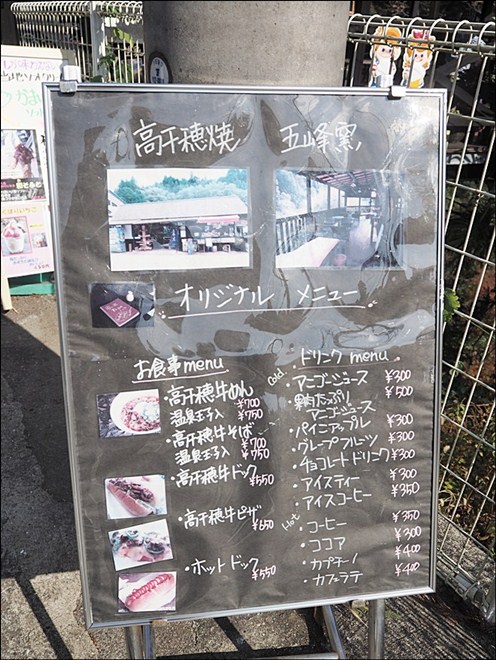 高千穂焼 五峰窯
オリジナル メニュー
お食事menu
・高千穂牛めん ¥700
温泉玉子入 ¥750
・高千穂牛そば ¥700
温泉玉子入 ¥750
・高千穂牛ドック ¥550
・高千穂牛ピザ ¥650
・ホットドック ¥550
ドリンク menu
Cold
・マンゴージュース ¥300
・果肉たっぷり ¥500
マンゴージュース
・パイニアップル ¥300
・グレープフルーツ ¥300
・チョコレートドリンク ¥300
・アイスティー ¥300
・アイスコーヒー ¥350
Hot
・コーヒー ¥350
・ココア ¥300
・カプチーノ ¥400
・カフェラテ ¥400